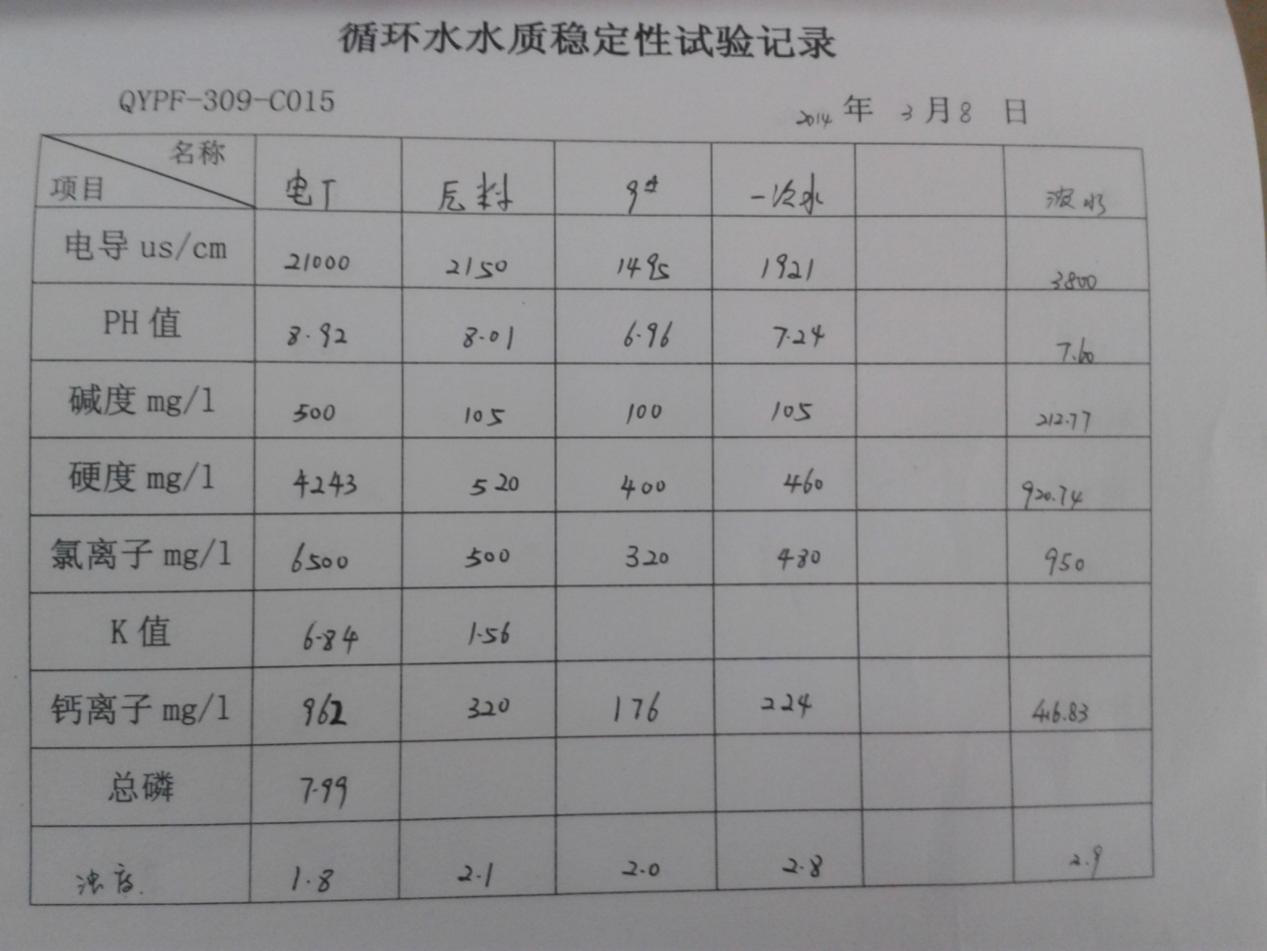 循环水水质稳定性试验记录
QYPF-309-C015 2014 年 3 月 8 日
名称
项目 电厂 原料 9# 一次水 浓水
电导 us/cm 21000 2150 1495 1921 3800
PH 值 8.92 8.01 6.96 7.24 7.60
碱度 mg/l 500 105 100 105 212.77
硬度 mg/l 4243 520 400 460 920.74
氯离子 mg/l 6500 500 320 480 950
K 值 6.84 1.56
钙离子 mg/l 962 320 176 224 416.83
总磷 7.99
浊度. 1.8 2.1 2.0 2.8 2.9